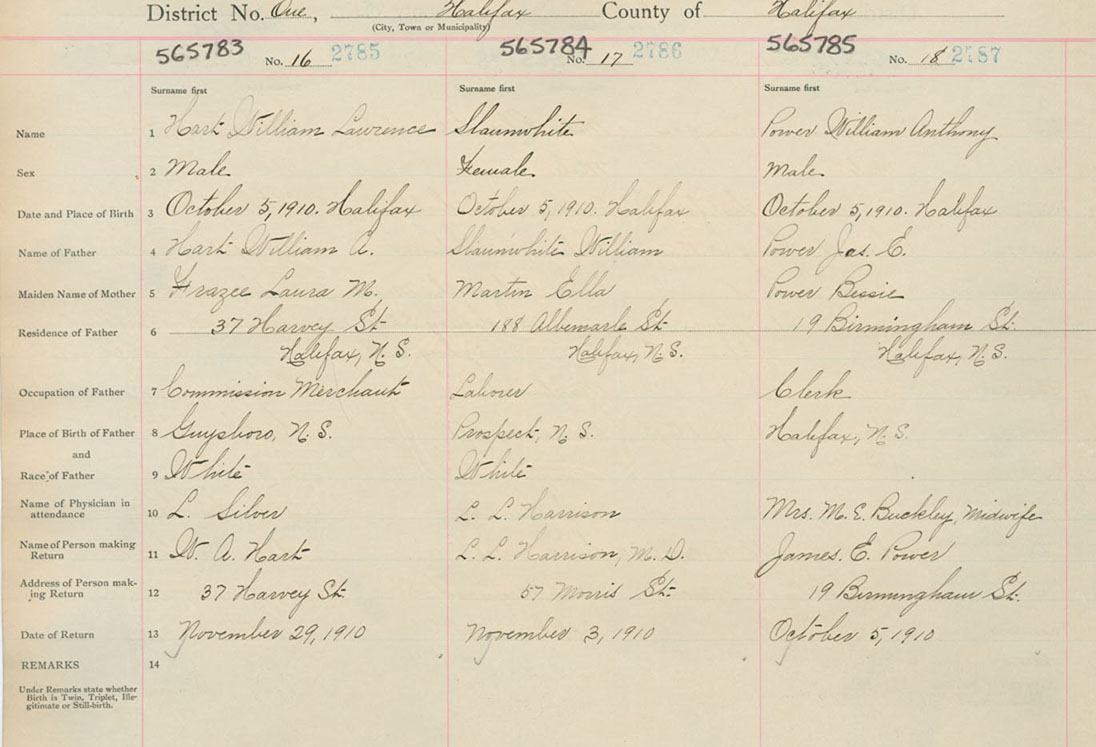 District No. One, Halifax County of Halifax
(City, Town or Municipality)
565783 No. 16 2785 565784 No. 17 2786 565785 No. 18 2787
Surname first Surname first Surname first
Name 1 Hart William Lawrence Slaunwhite Power William Anthony
Sex 2 Male Female Male
Date and Place of Birth 3 October 5, 1910. Halifax October 5, 1910. Halifax October 5, 1910. Halifax
Name of Father 4 Hart William A. Slaunwhite William Power Jas. E.
Maiden Name of Mother 5 Frazee Laura M. Martin Ella Power Bessie
Residence of Father 6 37 Harvey St. 188 Albemarle St. 19 Birmingham St.
Halifax, N.S. Halifax, N.S. Halifax, N.S.
Occupation of Father 7 Commission Merchant Laborer Clerk
Place of Birth of Father 8 Guysboro, N.S. Prospect, N.S. Halifax, N.S.
and
Race of Father 9 White White
Name of Physician in
attendance 10 L. Silver L. L. Harrison Mrs. M. E. Buckley, Midwife
Name of Person making
Return 11 W. A. Hart L. L. Harrison, M.D. James. E. Power
Address of Person mak-
ing Return 12 37 Harvey St. 57 Morris St. 19 Birmingham St.
Date of Return 13 November 29, 1910 November 3, 1910 October 5, 1910
REMARKS 14
Under Remarks state whether
Birth is Twin, Triplet, Ille-
gitimate or Still-birth.